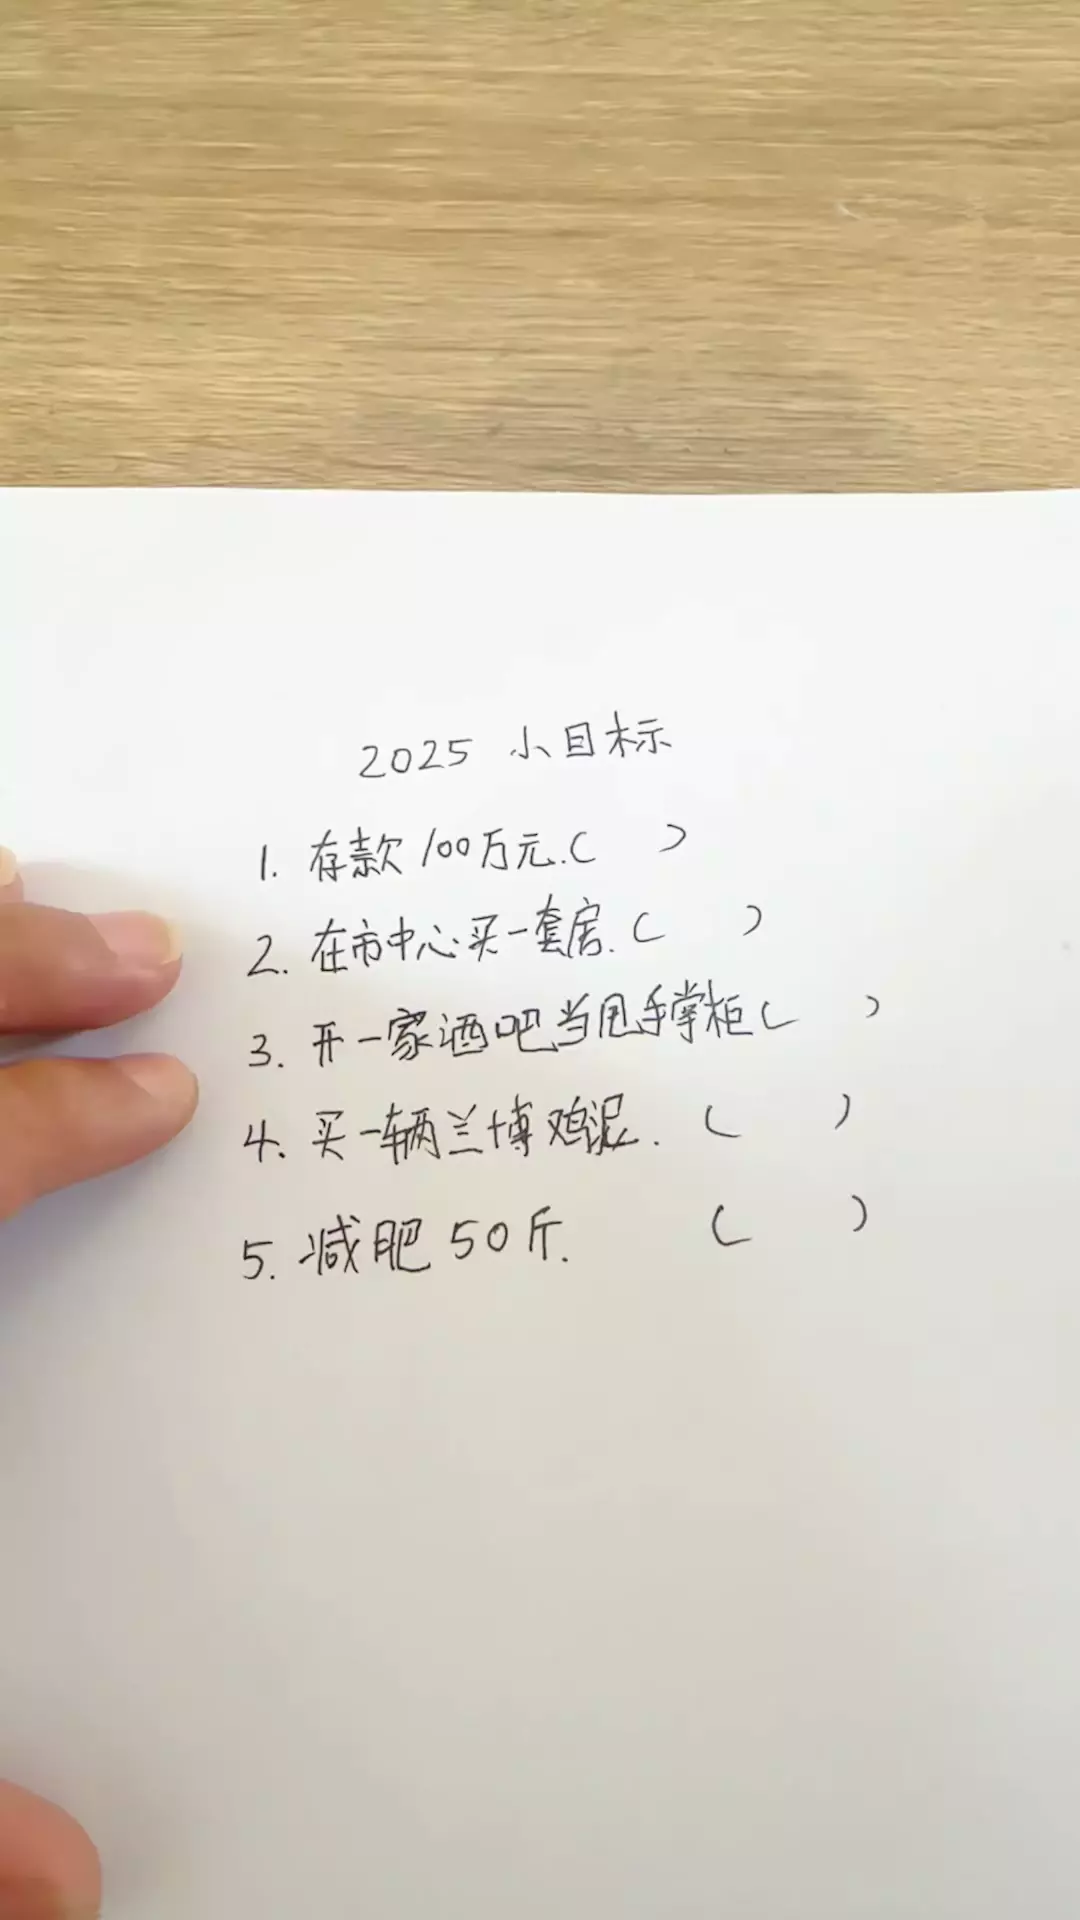 2025 小目标
1. 存款100万元.( )
2. 在市中心买一套房.( )
3. 开一家酒吧当甩手掌柜( )
4. 买一辆兰博鸡泥. ( )
5. 减肥50斤. ( )